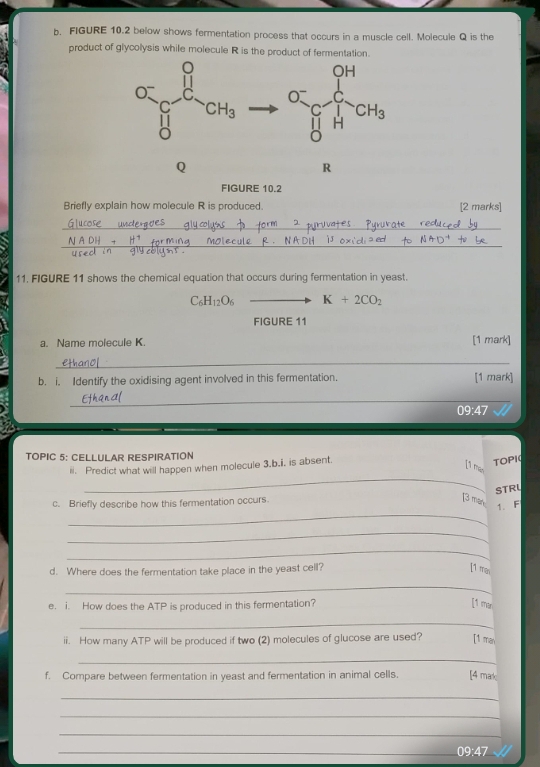 b. FIGURE 10.2 below shows fermentation process that occurs in a muscle cell. Molecule Q is the
product of glycolysis while molecule R is the product of fermentation.
O OH
O⁻ C CH₃ O⁻ C CH₃
C C H
O O
Q R
FIGURE 10.2
Briefly explain how molecule R is produced. [2 marks]
Glucose undergoes glycolysis to form 2 pyruvates Pyruvate reduced by
NADH + H⁺ forming molecule R. NADH is oxidized to NAD⁺ to be
used in glycolysis.
11. FIGURE 11 shows the chemical equation that occurs during fermentation in yeast.
C₆H₁₂O₆ ⟶ K + 2CO₂
FIGURE 11
a. Name molecule K. [1 mark]
ethanol
b. i. Identify the oxidising agent involved in this fermentation. [1 mark]
Ethanal
09:47
TOPIC 5: CELLULAR RESPIRATION
ii. Predict what will happen when molecule 3.b.i. is absent. [1 ma
c. Briefly describe how this fermentation occurs. [3 mark
d. Where does the fermentation take place in the yeast cell? [1 ma
e. i. How does the ATP is produced in this fermentation? [1 mar
ii. How many ATP will be produced if two (2) molecules of glucose are used? [1 ma
f. Compare between fermentation in yeast and fermentation in animal cells. [4 mark
TOPIC
STRU
1. F
09:47